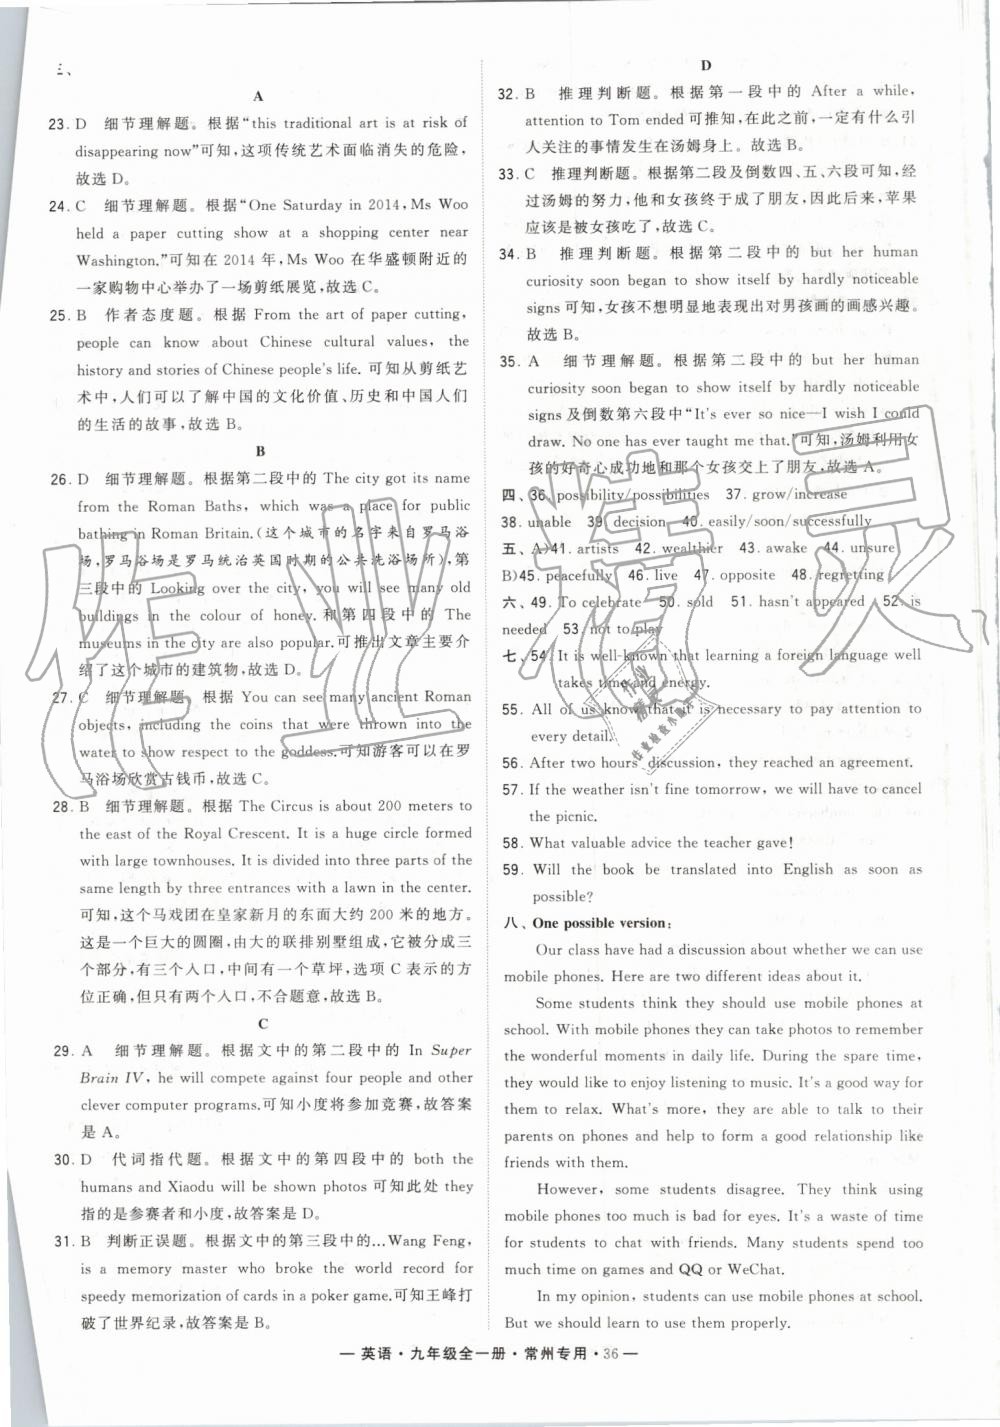 三、
A
23. D 细节理解题。根据“this traditional art is at risk of
disappearing now”可知,这项传统艺术面临消失的危险,
故选 D。
24. C 细节理解题。根据“One Saturday in 2014, Ms Woo
held a paper cutting show at a shopping center near
Washington.”可知在 2014 年, Ms Woo 在华盛顿附近的
一家购物中心举办了一场剪纸展览,故选 C。
25. B 作者态度题。根据 From the art of paper cutting,
people can know about Chinese cultural values, the
history and stories of Chinese people's life. 可知从剪纸艺
术中,人们可以了解中国的文化价值、历史和中国人们
的生活的故事,故选 B。
B
26. D 细节理解题。根据第二段中的 The city got its name
from the Roman Baths, which was a place for public
bathing in Roman Britain.(这个城市的名字来自罗马浴
场,罗马浴场是罗马统治英国时期的公共洗浴场所),第
三段中的 Looking over the city, you will see many old
buildings in the colour of honey. 和第四段中的 The
museums in the city are also popular.可推出文章主要介
绍了这个城市的建筑物,故选 D。
27. C 细节理解题。根据 You can see many ancient Roman
objects, including the coins that were thrown into the
water to show respect to the goddess.可知游客可以在罗
马浴场欣赏古钱币,故选 C。
28. B 细节理解题。根据 The Circus is about 200 meters to
the east of the Royal Crescent. It is a huge circle formed
with large townhouses. It is divided into three parts of the
same length by three entrances with a lawn in the center.
可知,这个马戏团在皇家新月的东面大约 200 米的地方。
这是一个巨大的圆圈,由大的联排别墅组成,它被分成三
个部分,有三个人口,中间有一个草坪,选项 C 表示的方
位正确,但只有两个人口,不合题意,故选 B。
C
29. A 细节理解题。根据文中的第二段中的 In Super
Brain IV, he will compete against four people and other
clever computer programs.可知小度将参加竞赛,故答案
是 A。
30. D 代词指代题。根据文中的第四段中的 both the
humans and Xiaodu will be shown photos 可知此处 they
指的是参赛者和小度,故答案是 D。
31. B 判断正误题。根据文中的第三段中的…Wang Feng,
is a memory master who broke the world record for
speedy memorization of cards in a poker game.可知王峰打
破了世界纪录,故答案是 B。
D
32. B 推理判断题。根据第一段中的 After a while,
attention to Tom ended 可推知,在此之前,一定有什么引
人关注的事情发生在汤姆身上。故选 B。
33. C 推理判断题。根据第二段及倒数四、五、六段可知,经
过汤姆的努力,他和女孩终于成了朋友,因此可知,苹果
应该是被女孩吃了,故选 C。
34. B 推理判断题。根据第二段中的 but her human
curiosity soon began to show itself by hardly noticeable
signs 可知,女孩不想明显地表现出对男孩画的画感兴趣。
故选 B。
35. A 细节理解题。根据第二段中的 but her human
curiosity soon began to show itself by hardly noticeable
signs 及倒数第六段中“It's ever so nice—I wish I could
draw. No one has ever taught me that.”可知,汤姆利用女
孩的好奇心成功地和那个女孩交上了朋友,故选 A。
四、36. possibility/possibilities 37. grow/increase
38. unable 39. decision 40. easily/soon/successfully
五、A)41. artists 42. wealthier 43. awake 44. unsure
B)45. peacefully 46. live 47. opposite 48. regretting
六、49. To celebrate 50. sold 51. hasn't appeared 52. is
needed 53. not to play
七、54. It is well-known that learning a foreign language well
takes time and energy.
55. All of us know that it is necessary to pay attention to
every detail.
56. After two hours' discussion, they reached an agreement.
57. If the weather isn't fine tomorrow, we will have to cancel
the picnic.
58. What valuable advice the teacher gave!
59. Will the book be translated into English as soon as
possible?
八、One possible version:
Our class have had a discussion about whether we can use
mobile phones. Here are two different ideas about it.
Some students think they should use mobile phones at
school. With mobile phones they can take photos to remember
the wonderful moments in daily life. During the spare time,
they would like to enjoy listening to music. It's a good way for
them to relax. What's more, they are able to talk to their
parents on phones and help to form a good relationship like
friends with them.
However, some students disagree. They think using
mobile phones too much is bad for eyes. It's a waste of time
for students to chat with friends. Many students spend too
much time on games and QQ or WeChat.
In my opinion, students can use mobile phones at school.
But we should learn to use them properly.
— 英语·九年级全一册·常州专用·36 —
作业精灵